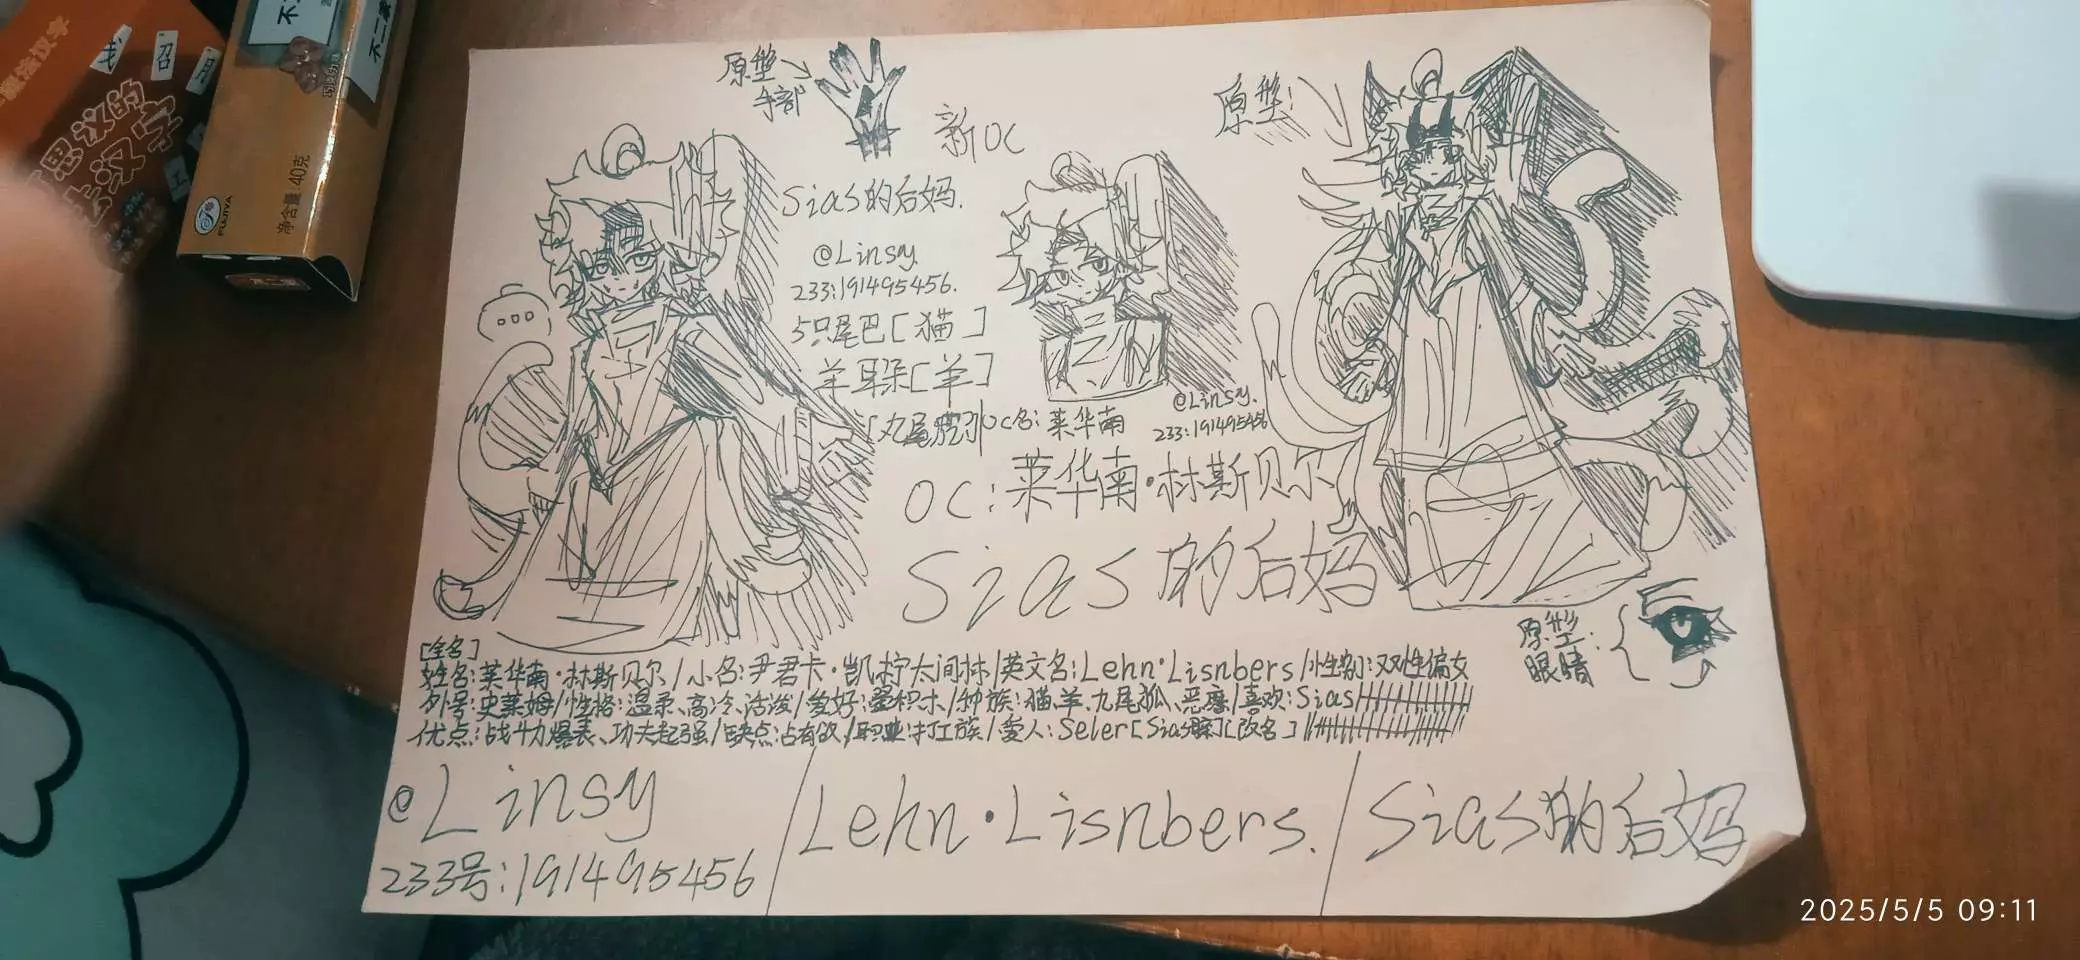 原型
手部
新OC
原型!
Sias的后妈.
@Linsy.
233:191495456.
5只尾巴[猫]
羊耳朵[羊]
OC名:莱华南
@Linsy.
233:191495456
OC:莱华南·林斯贝尔
Sias的后妈
原型:
眼睛
[全名]
姓名:莱华南·林斯贝尔/小名:尹君卡·凯柠太间林/英文名:Lehn·Lisnbers/性别:双性偏女
外号:史莱姆/性格:温柔、高冷、活泼/爱好:爱积木/种族:猫、羊、九尾狐、恶魔/喜欢:Sias
优点:战斗力爆表、功夫超强/缺点:占有欲/职业:打工族/爱人:Seler[Sias][改名]
@Linsy
233号:191495456
Lehn·Lisnbers.
Sias的后妈
不二家
FUJIYA
净含量:40克
思议的
汉字
2025/5/5 09:11